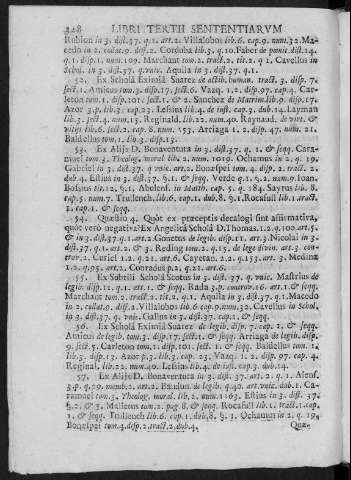 328 LIBRI TERTII SENTENTIARVM
Rubion in 3. dist. 37. q. 1. art. 2. Villalobos lib. 6. cap. 9. num. 32. Ma-
cedo in 2. collat. 9. disp. 2. Cordoba lib. 3. q. 10. Faber de pœnit. dist. 14.
q. 1. disp. 1. num. 109. Marchant tom. 2. tract. 2. tit. 2 q 1. Cavellus in
Schol. in 3. dist. 37. q. vnic. Aquila in 3. dist. 37. q. 1.
52. Ex Scholâ Eximiâ Suarez de actib. human. tract. 3. disp. 7.
sect. 1. Amicus tom. 3. disp. 17. sect. 6. Vazq. 1. 2. disp. 97. cap. 4. Car-
leton tom. 1. disp. 101. sect. 1. & 2. Sanchez de Matrim. lib. 9. disp. 17.
Azor 3. p. lib. 3. cap. 23. Lesius lib. 4. de iust. cap. 3. dub. 14. Layman
lib. 3. sect. 4. num. 15. Reginald. lib. 22. num. 40. Raynaud. de virt. &
vitijs lib. 6. sect. 2. cap. 8. num. 153. Arriaga 1. 2. disp. 47. num. 21.
Baldellus tom. 1. lib. 3. disp. 13.
53. Ex Alijs D. Bonaventura in 3. dist. 37. q. 1. & seqq. Cara-
muel tom. 3. Theolog. moral. lib. 2. num. 1019. Ochamus in 2. q. 19.
Gabriel in 3. dist. 37. q. vnic. art. 2. Bonæspei tom. 4. disp. 2. tract. 2.
dub. 4. Estius in 3. dist. 37. §. 1. & seqq. Verde q. 1. §. 2. num. 9. Ioan.
Bossius tit. 12. §. 1. Abulens. in Math. cap. 5. q. 284. Sayrus lib. 8.
cap. 5. num. 7. Trullench. lib. 6. cap. 1. dub. 8. §. 1. Rocafull lib 1. tract.
2. cap. 1. & seqq.
54. Quæstio 4. Quòt ex præceptis decalogi sint affirmativa,
quòt verò negativa? Ex Angelicâ Scholâ D. Thomas 1. 2. q. 100. art. 5.
& in 3. dist. 37. q. 1. art. 2. Gonetus de legib. disp. 11. art. 3. Nicolai in 3.
dist. 37. q. 1. art. 2. & 3. Reding tom. 2. q. 15. de lege divin. art. 3. con-
trov. 2. Curiel 1. 2. q. 21. art. 6. Cayetan. 2. 2. q. 153. art. 3. Medina
1. 2. q. 95. art. 2. Contradus p. 2. q. 21. art. 6.
55. Ex Subtili Scholâ Scotus in 3. dist. 37. q. vnic. Mastrius de
legib. disp. 11. q. 1. & seqq. Rada 3. p. controv. 16. art. 1. & seqq.
Marchant tom. 2. tract. 2. tit. 2. q 1. Aquila in 3. dist. 37. q. 1. Macedo
in 2. collat. 9. disp. 2. Villalobos lib. 6. cap. 9. num. 32. Cavellus in Schol.
in 3. dist. 37. q. vnic. Gallus in 3. dist. 37. cap. 1. & seqq.
56. Ex Scholâ Eximiâ Suarez de legib. disp. 7. cap. 2. & seqq.
Amicus de legib. tom. 3. disp. 17. sect. 1. & seqq. Arriaga de legib. disp.
9. sect. 5. Carleton tom. 2. disp. 101. sect. 1. & seqq. Baldellus tom. 1.
lib. 3. disp. 13. Azor p. 3. lib. 3. cap. 23. Vazq. 1. 2. disp. 97. cap. 4.
Reginal. lib. 22. num. 40. Lesius lib. 4. de iust. cap. 3. dub. 14.
57. Ex Alijs D. Bonaventura in 3. dist. 37. art. 2. q. 1. Alens.
3. p. q. 29. memb. 2. art. 2. Baulius de legib. q. 40. art. vnic. dub. 1. Ca-
ramuel tom. 3. Theolog. moral. lib. 2. num. 1163. Estius in 3. dist. 37.
§. 2. & 3. Malletus tom. 2. pag. 8. & seqq. Rocafull lib. 1. tract. 1. cap.
1. & seqq. Trullench lib. 6. cap. 1. dub. 8. §. 1. Ochamus in 2. q. 19.
Bonæspei tom. 4. disp. 2. tract. 2. dub. 4.
Quæ-